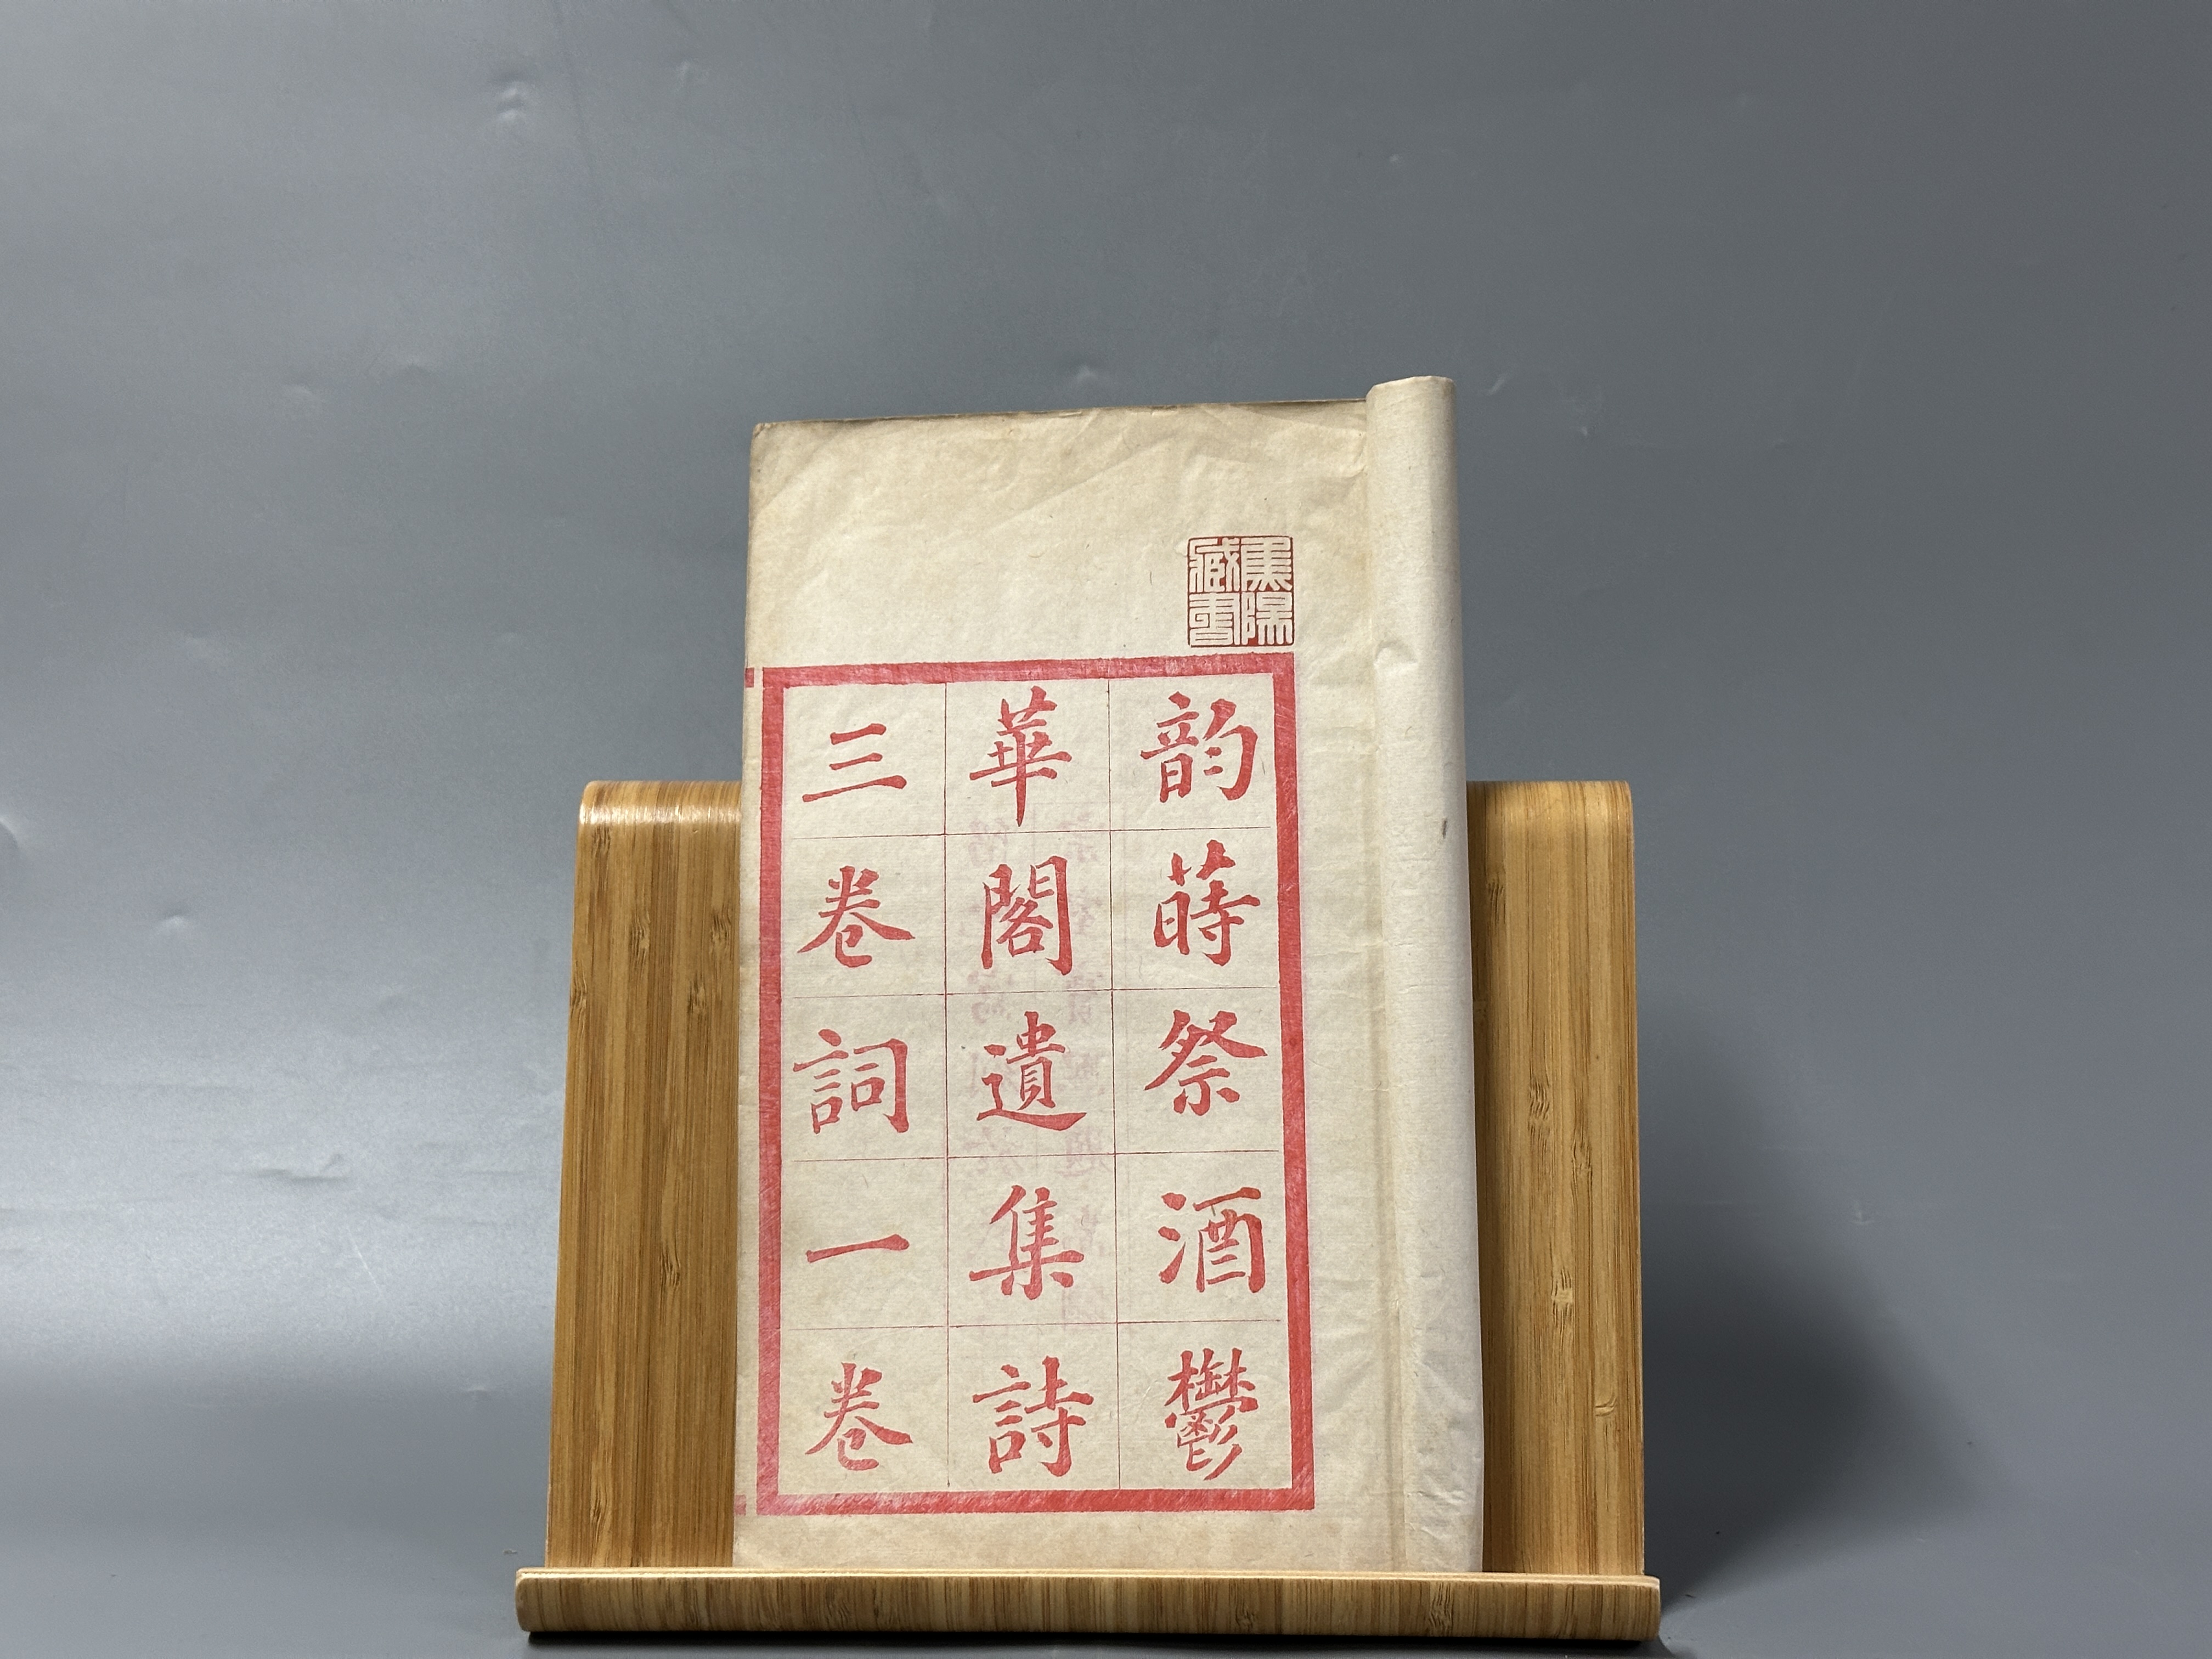 藏書
韵蒔祭酒鬱
華閣遺集詩
三卷詞一卷